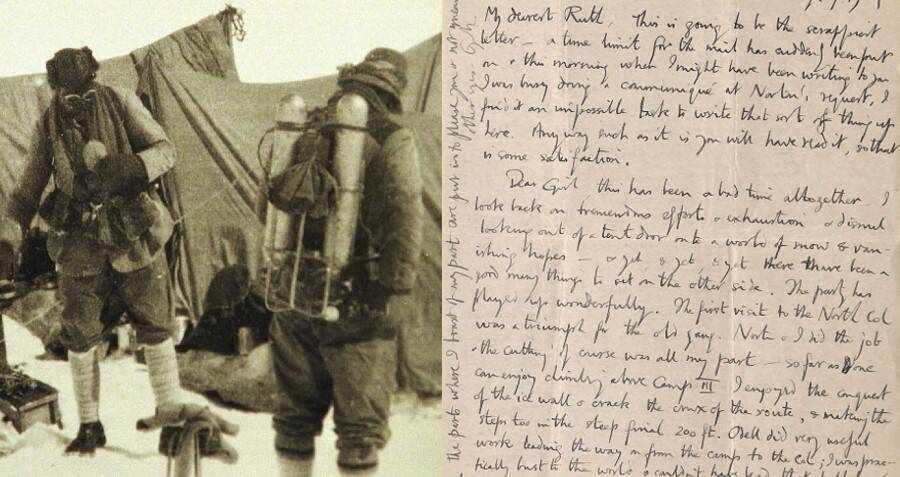 My dearest Ruth, This is going to be the scrappiest
letter – a time limit for the mail has suddenly been put
on & this morning when I might have been writing to you
I was busy doing a communiqué at Norton's request, I
find it an impossible task to write that sort of thing up
here. Anyway such as it is you will have read it, so that
is some satisfaction.
Dear Girl this has been a bad time altogether. I
look back on tremendous efforts & exhaustion & dismal
looking out of a tent door onto a world of snow & van-
ishing hopes – & yet, & yet, & yet there have been a
good many things to set on the other side. The party has
played up wonderfully. The first visit to the North Col
was a triumph for the old gang. Norton & I did the job
& the cutting of course was all my part – so far as one
can enjoy climbing above Camp III I enjoyed the conquest
of the ice wall & crack the crux of the route, & making the
steps too in the steep final 200 ft. Odell did very useful
work leading the way on from the camp to the Col; I was prac-
tically bust to the world & couldn't have lead that
the parts where I boast of my part are put in to please you & not meant